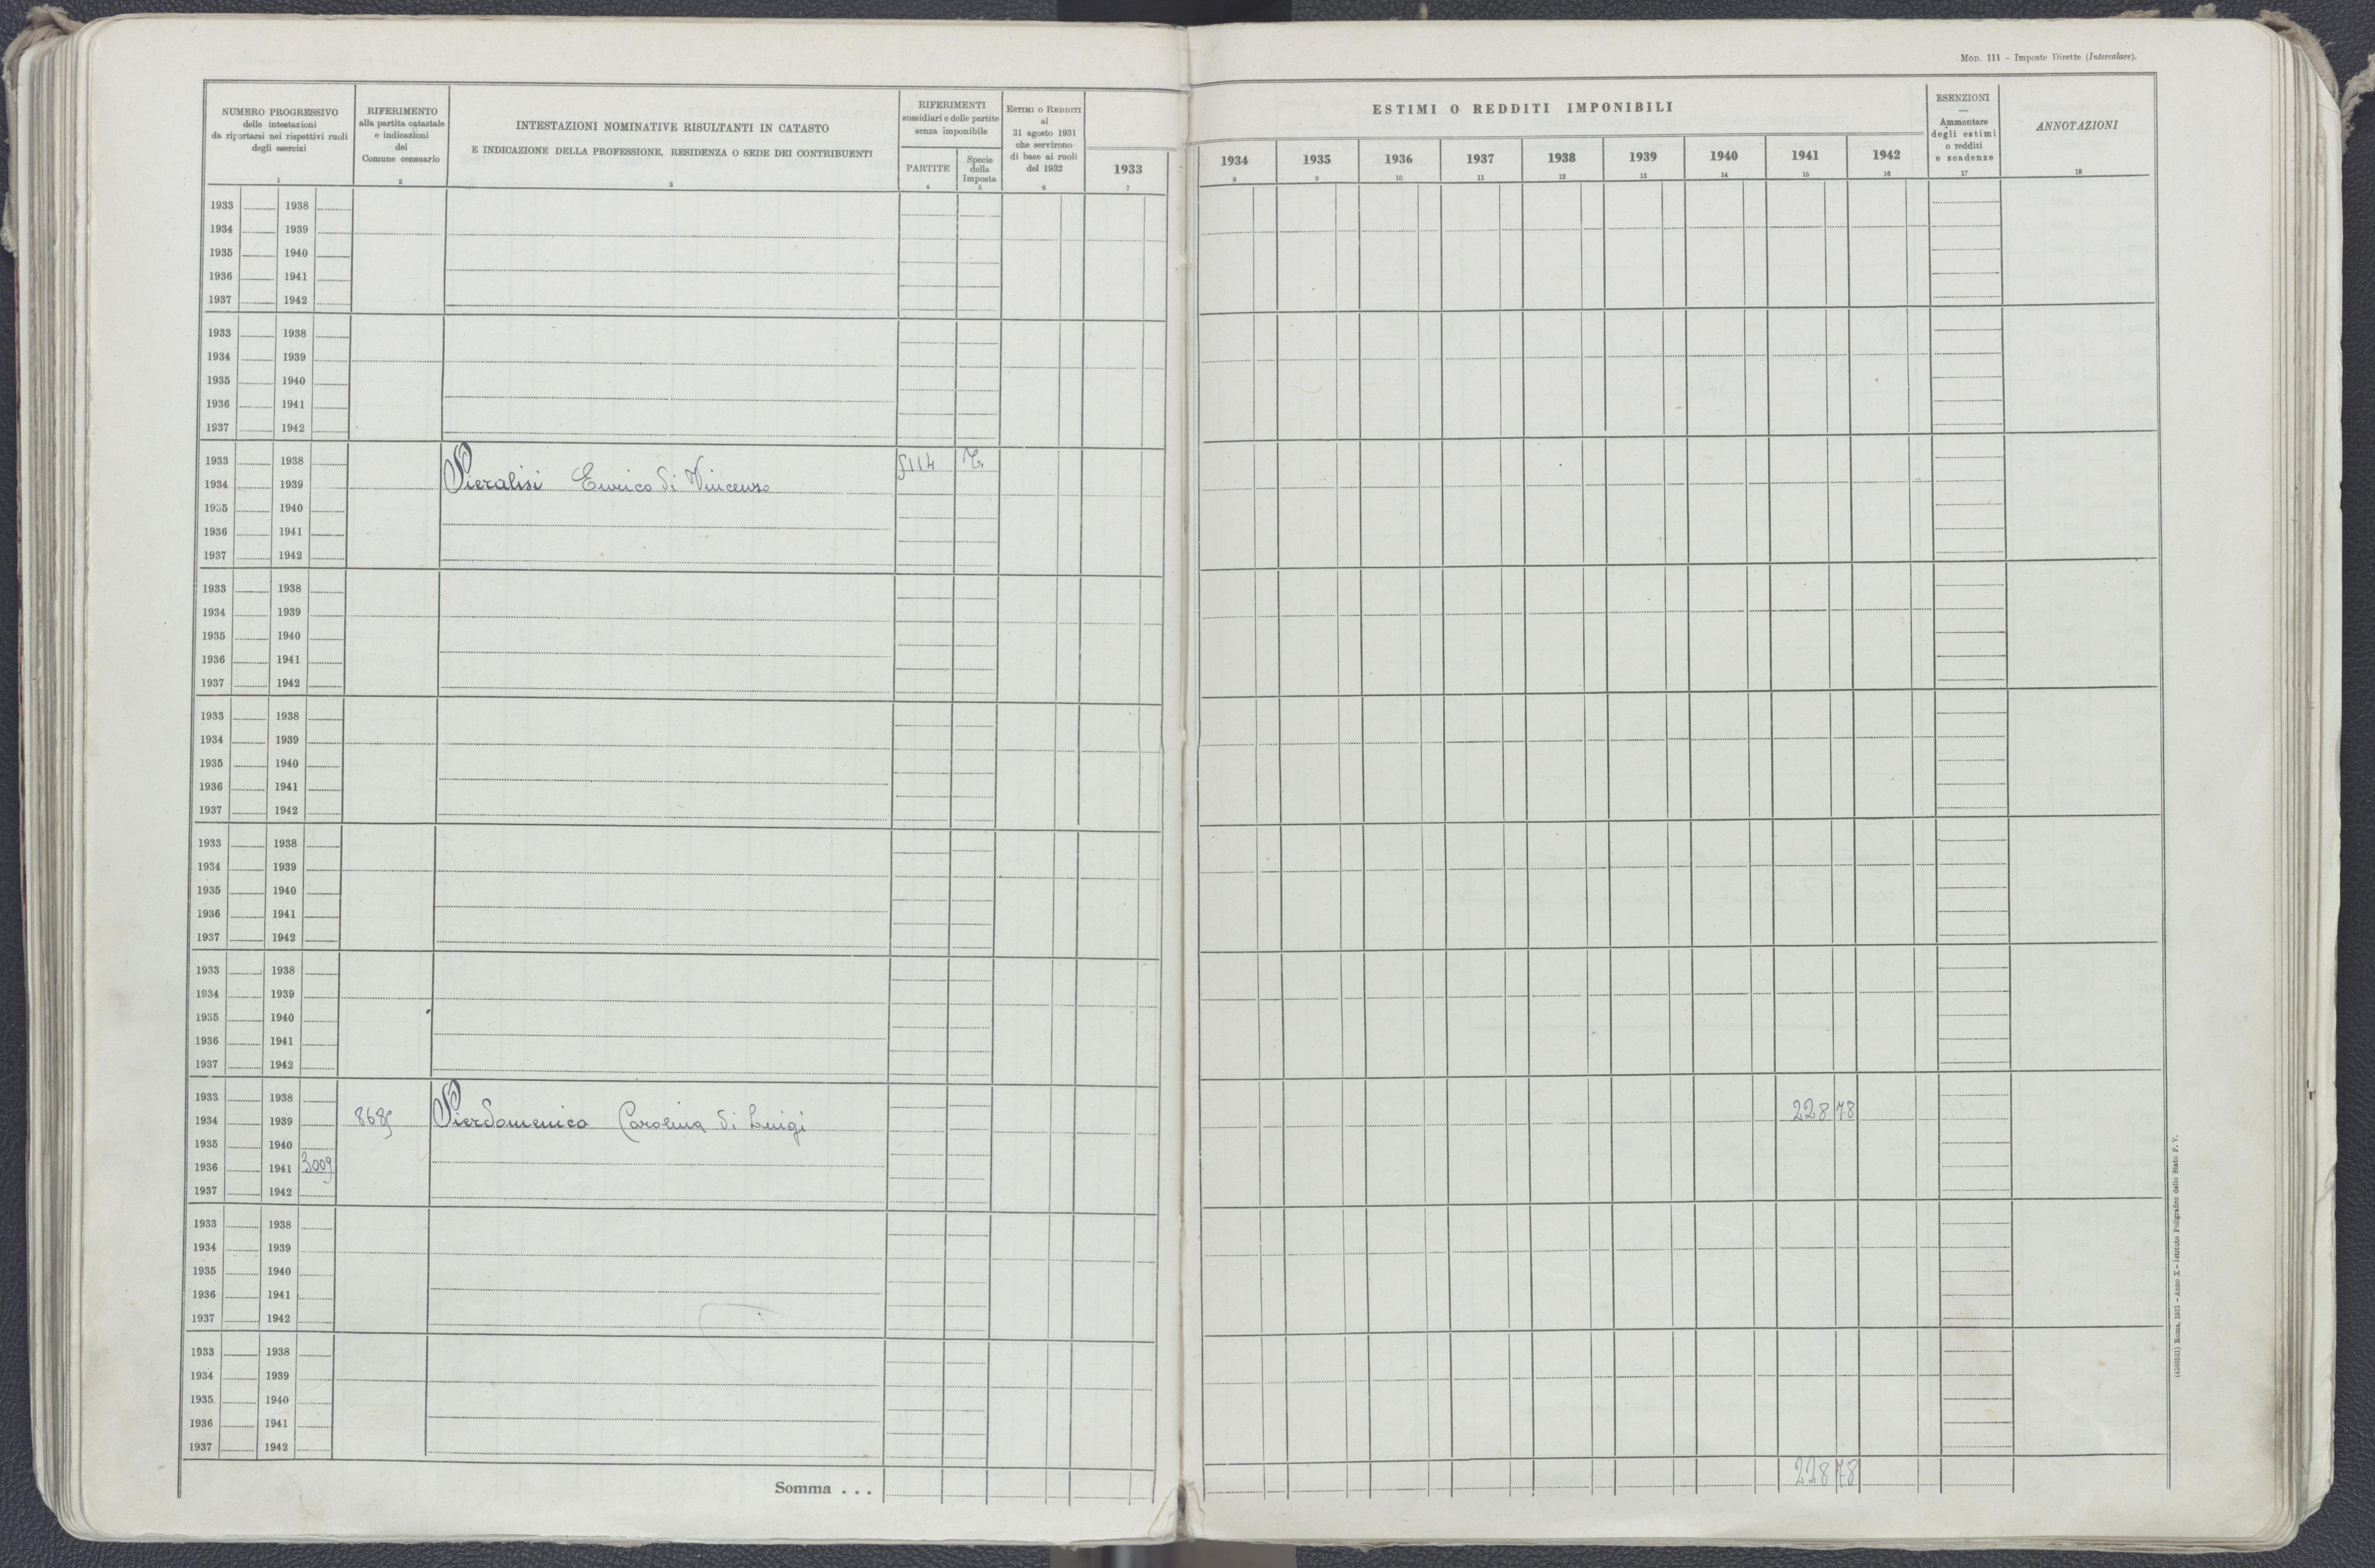 MOD. 111 – Imposte Dirette (Intercalare).
NUMERO PROGRESSIVO
delle intestazioni
da riportarsi nei rispettivi ruoli
degli esercizi
1
RIFERIMENTO
alla partita catastale
e indicazioni
del
Comune censuario
2
INTESTAZIONI NOMINATIVE RISULTANTI IN CATASTO
E INDICAZIONE DELLA PROFESSIONE, RESIDENZA O SEDE DEI CONTRIBUENTI
3
RIFERIMENTI
sussidiari e delle partite
senza imponibile
PARTITE
4
Specie
della
Imposta
5
ESTIMI O REDDITI
al
31 agosto 1931
che servirono
di base ai ruoli
del 1932
6
1933
7
ESTIMI O REDDITI IMPONIBILI
1934 1935 1936 1937 1938 1939 1940 1941 1942
8 9 10 11 12 13 14 15 16
ESENZIONI
—
Ammontare
degli estimi
o redditi
e scadenze
17
ANNOTAZIONI
18
1933 1938
1934 1939
1935 1940
1936 1941
1937 1942
1933 1938
1934 1939
1935 1940
1936 1941
1937 1942
1933 1938 5114
1934 1939 Pieralisi Enrico di Vincenzo
1935 1940
1936 1941
1937 1942
1933 1938
1934 1939
1935 1940
1936 1941
1937 1942
1933 1938
1934 1939
1935 1940
1936 1941
1937 1942
1933 1938
1934 1939
1935 1940
1936 1941
1937 1942
1933 1938
1934 1939
1935 1940
1936 1941
1937 1942
1933 1938 228 78
1934 1939 8685 Pierdomenico Carolina di Luigi
1935 1940
1936 1941 3009
1937 1942
1933 1938
1934 1939
1935 1940
1936 1941
1937 1942
1933 1938
1934 1939
1935 1940
1936 1941
1937 1942
Somma . . . 228 78
(4103531) Roma, 1931 – Anno X – Istituto Poligrafico dello Stato P. V.